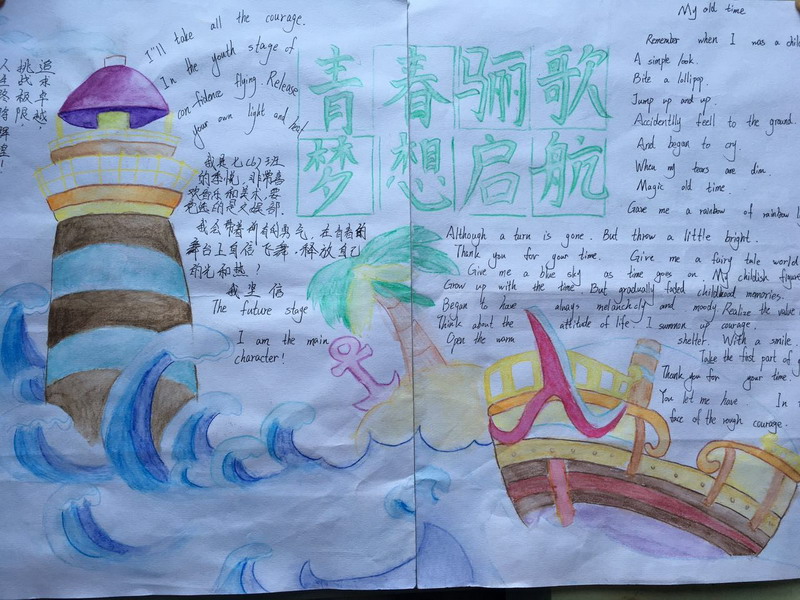 青春骊歌
梦想启航
追求卓越!
挑战极限!
I'll take all the courage.
In the youth stage of
confidence flying. Release
your own light and heat
我是七(6)班
的李悦,非常喜
欢音乐和美术,要
竞选的是文娱部.
我会带着所有的勇气,在青春的
舞台上自信飞舞,释放自己
的光和热!
我坚信
The future stage
I am the main
character!
My old time
Remember when I was a child
A simple look.
Bite a lollipop.
Jump up and up.
Accidentlly feell to the ground.
And began to cry.
When my tears are dim.
Magic old time.
Gave me a rainbow of rainbow
Although a turn is gone. But throw a little bright.
Thank you for your time. Give me a fairy tale world
Give me a blue sky as time goes on. My childish figure
Grow up with the time. But gradually faded childhood memories.
Began to have always melancholy and moody. Realize the value
Think about the attitude of life. I summon up courage.
Open the warm shelter. With a smile.
Take the first part of
Thank you for your time.
You let me have In
face of the rough courage.